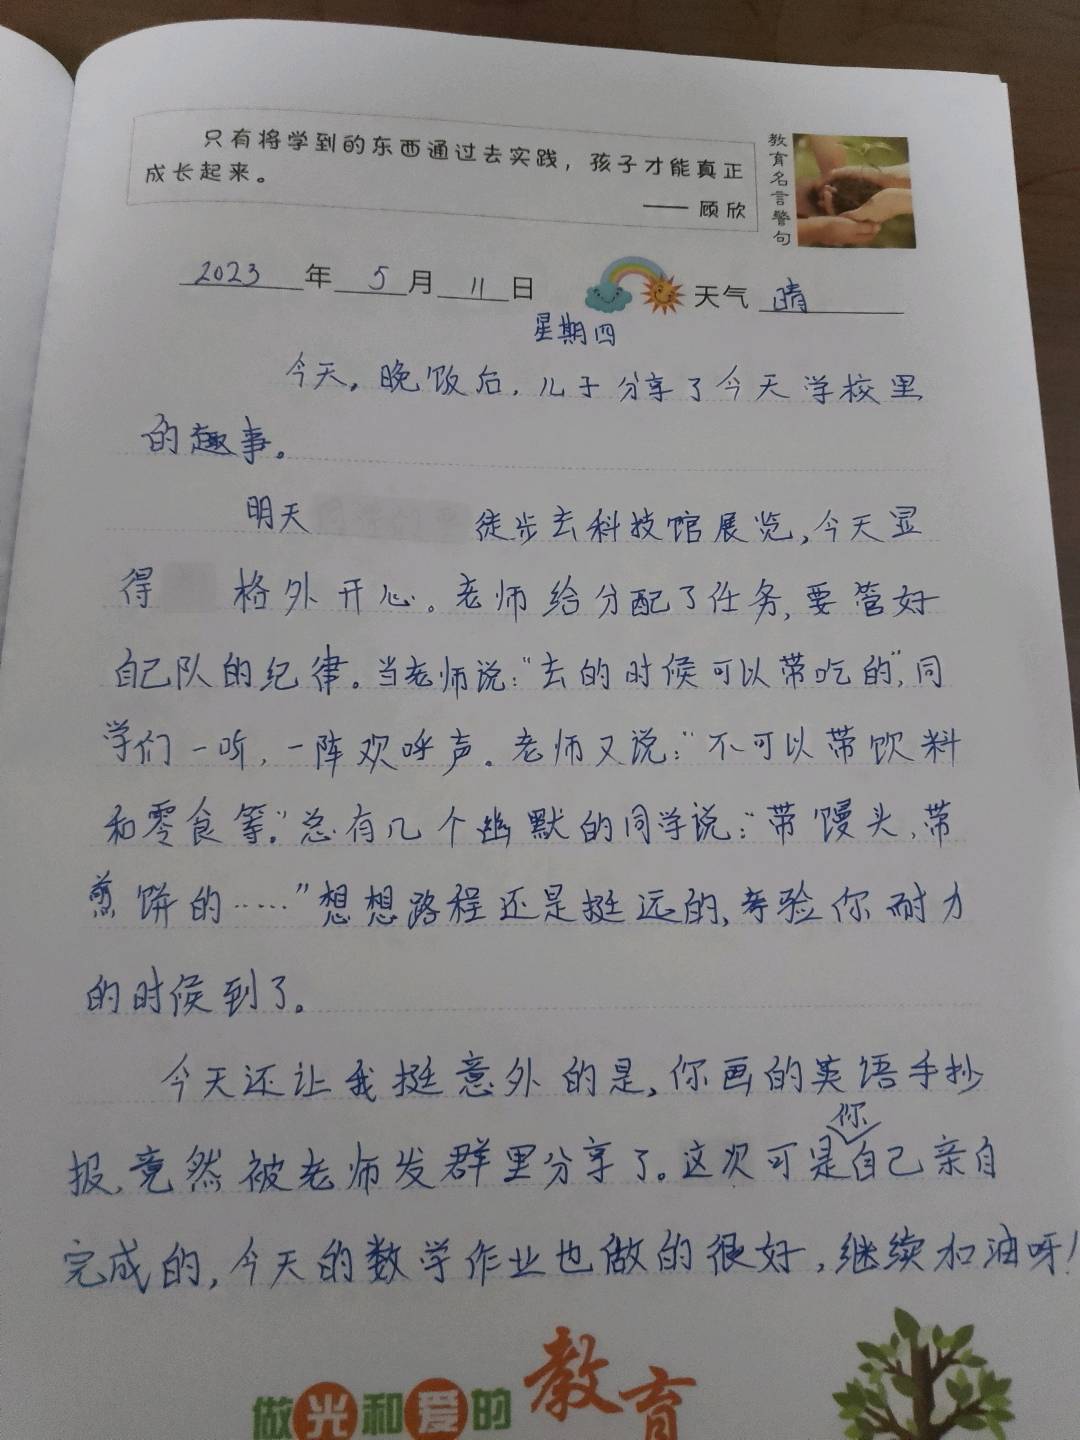 只有将学到的东西通过去实践，孩子才能真正
成长起来。
—— 顾欣
教育名言警句
2023年5月11日 天气 晴
星期四
今天，晚饭后，儿子分享了今天学校里
的趣事。
明天 徒步去科技馆展览，今天显
得 格外开心。老师给分配了任务，要管好
自己队的纪律。当老师说：“去的时候可以带吃的”，同
学们一听，一阵欢呼声。老师又说：“不可以带饮料
和零食等。”总有几个幽默的同学说：“带馒头，带
煎饼的……”想想路程还是挺远的，考验你耐力
的时候到了。
今天还让我挺意外的是，你画的英语手抄
报，竟然被老师发群里分享了。这次可是你自己亲自
完成的，今天的数学作业也做的很好，继续加油呀！
做光和爱的教育